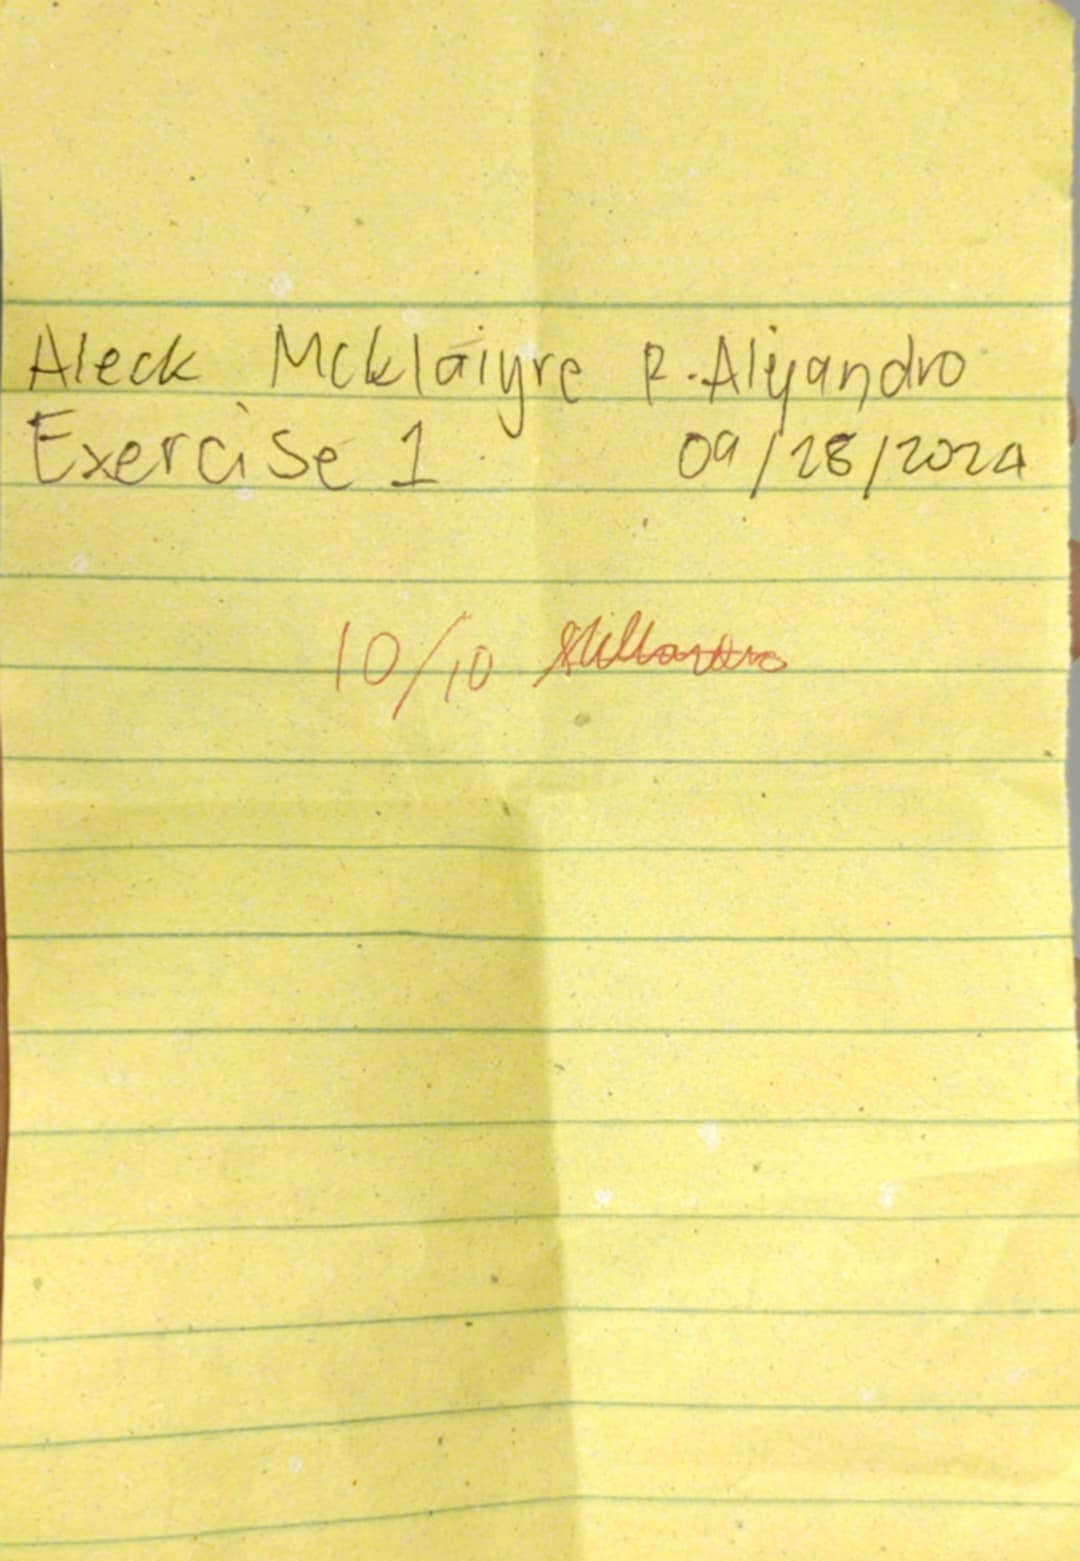 Aleck Mcklaiyre R. Alejandro
Exercise 1 09/28/2024
10/10